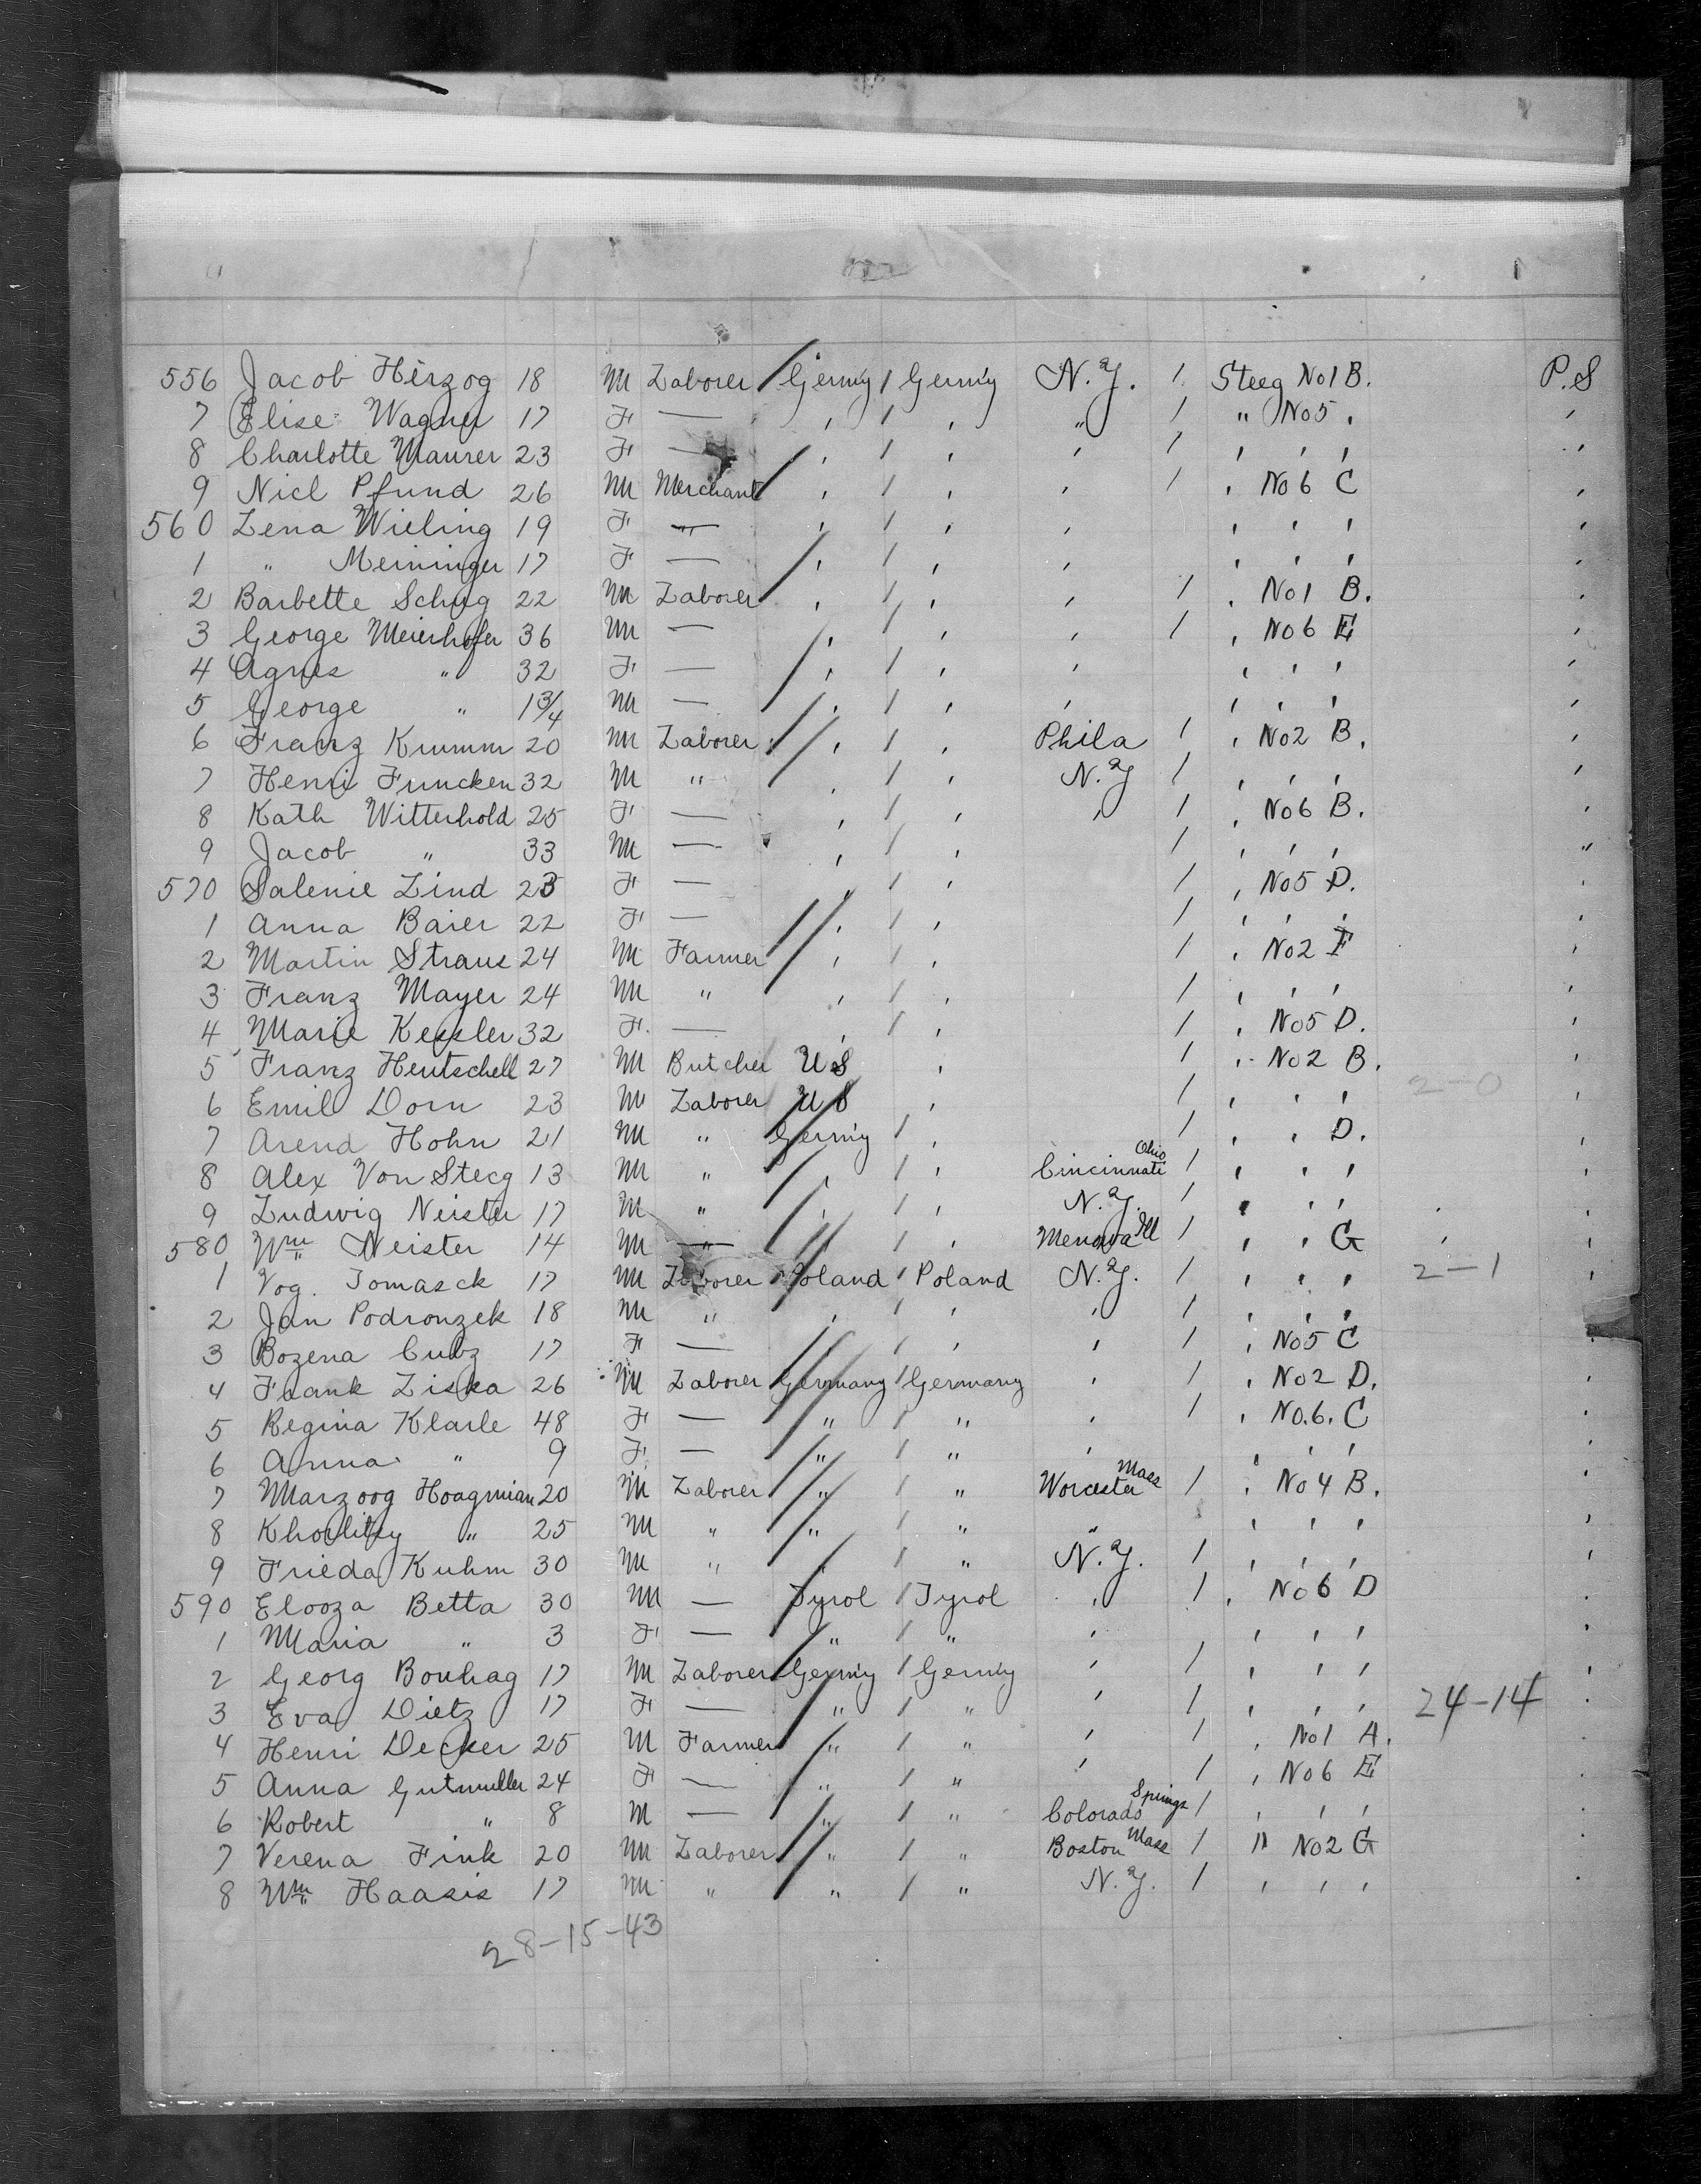 556 Jacob Herzog 18 M Laborer / Germ'y / Germ'y N.Y. / Steeg No1 B. P.S
7 Elise Wagner 17 F — , / , " / " No5 , ,
8 Charlotte Maurer 23 F — , / , , / , , , ,
9 Nicl Pfund 26 M Merchant / , / , , / , No 6 C ,
560 Lena Wieling 19 F — , / , , , , , ,
1 " Meininger 17 F — / , / , , , , , ,
2 Barbette Schug 22 M Laborer , / , , / , No1 B. ,
3 George Meierhofer 36 M — / , / , , / , No6 E ,
4 Agnes " 32 F — / , / , , , , , ,
5 George " 1 3/4 M — / , / , , , , , ,
6 Franz Krumm 20 M Laborer / , / , Phila / , No2 B. ,
7 Henri Funcken 32 M " , / , N.Y / , , , ,
8 Kath Witterhold 25 F — , / , , / , No6 B. ,
9 Jacob " 33 M — , / , / , , , "
570 Salenie Lind 23 F — , / , / , No5 D. ,
1 Anna Baier 22 F — / , / , / , , , ,
2 Martin Straus 24 M Farmer / , / , / , No2 F ,
3 Franz Mayer 24 M " , / , / , , , ,
4 Marie Kessler 32 F. — , / , / , No5 D. ,
5 Franz Hentschell 27 M Butcher U S , / , No2 B. ,
6 Emil Dorn 23 M Laborer U S , / , , , 2-0 ,
7 Arend Hohn 21 M " Germ'y / , / , , D. ,
8 Alex Von Stecg 13 M " / , / , Cincinnati Ohio / , , , ,
9 Ludwig Neister 17 M " / , / , N.Y. / , , , ,
580 Wm Neister 14 M " / / , Ill / , , G ,
1 Vog. Tomasck 17 M Laborer / Poland / Poland N.Y. / , , , 2-1 ,
2 Jan Podronzek 18 M " , / , , / , , , ,
3 Bozena Cubz 17 F — / , / , , / , No5 C ,
4 Frank Liska 26 M Laborer / Germany / Germany , / , No2 D. ,
5 Regina Klarle 48 F — / " / " , / , No.6. C ,
6 Anna " 9 F. — / " / " , , , , ,
7 Marzoog Hoagmian 20 M Laborer / " / " Worcester Mass / , No4 B. ,
8 " 25 M " / " / " " , , , ,
9 Frieda Kuhm 30 M " / , / " N.Y. / , , , ,
590 Elooza Betta 30 M — Tyrol / Tyrol , / , No6 D ,
1 Maria " 3 F — / " / " , , , , ,
2 Georg Bouhag 17 M Laborer / Germ'y / Germ'y , / , , , ,
3 Eva Dietz 17 F — / " / " , / , , , 24-14 ,
4 Henri Decker 25 M Farmer / " / " , / , No1 A. ,
5 Anna Gutmuller 24 F — / " / " , / , No6 E ,
6 Robert " 8 M — / " / " Colorado Springs / , , , ,
7 Verena Fink 20 M Laborer / " / " Boston Mass / " No2 G ,
8 Wm Haasis 17 M " / " / " N.Y. / , , , ,
28-15-43